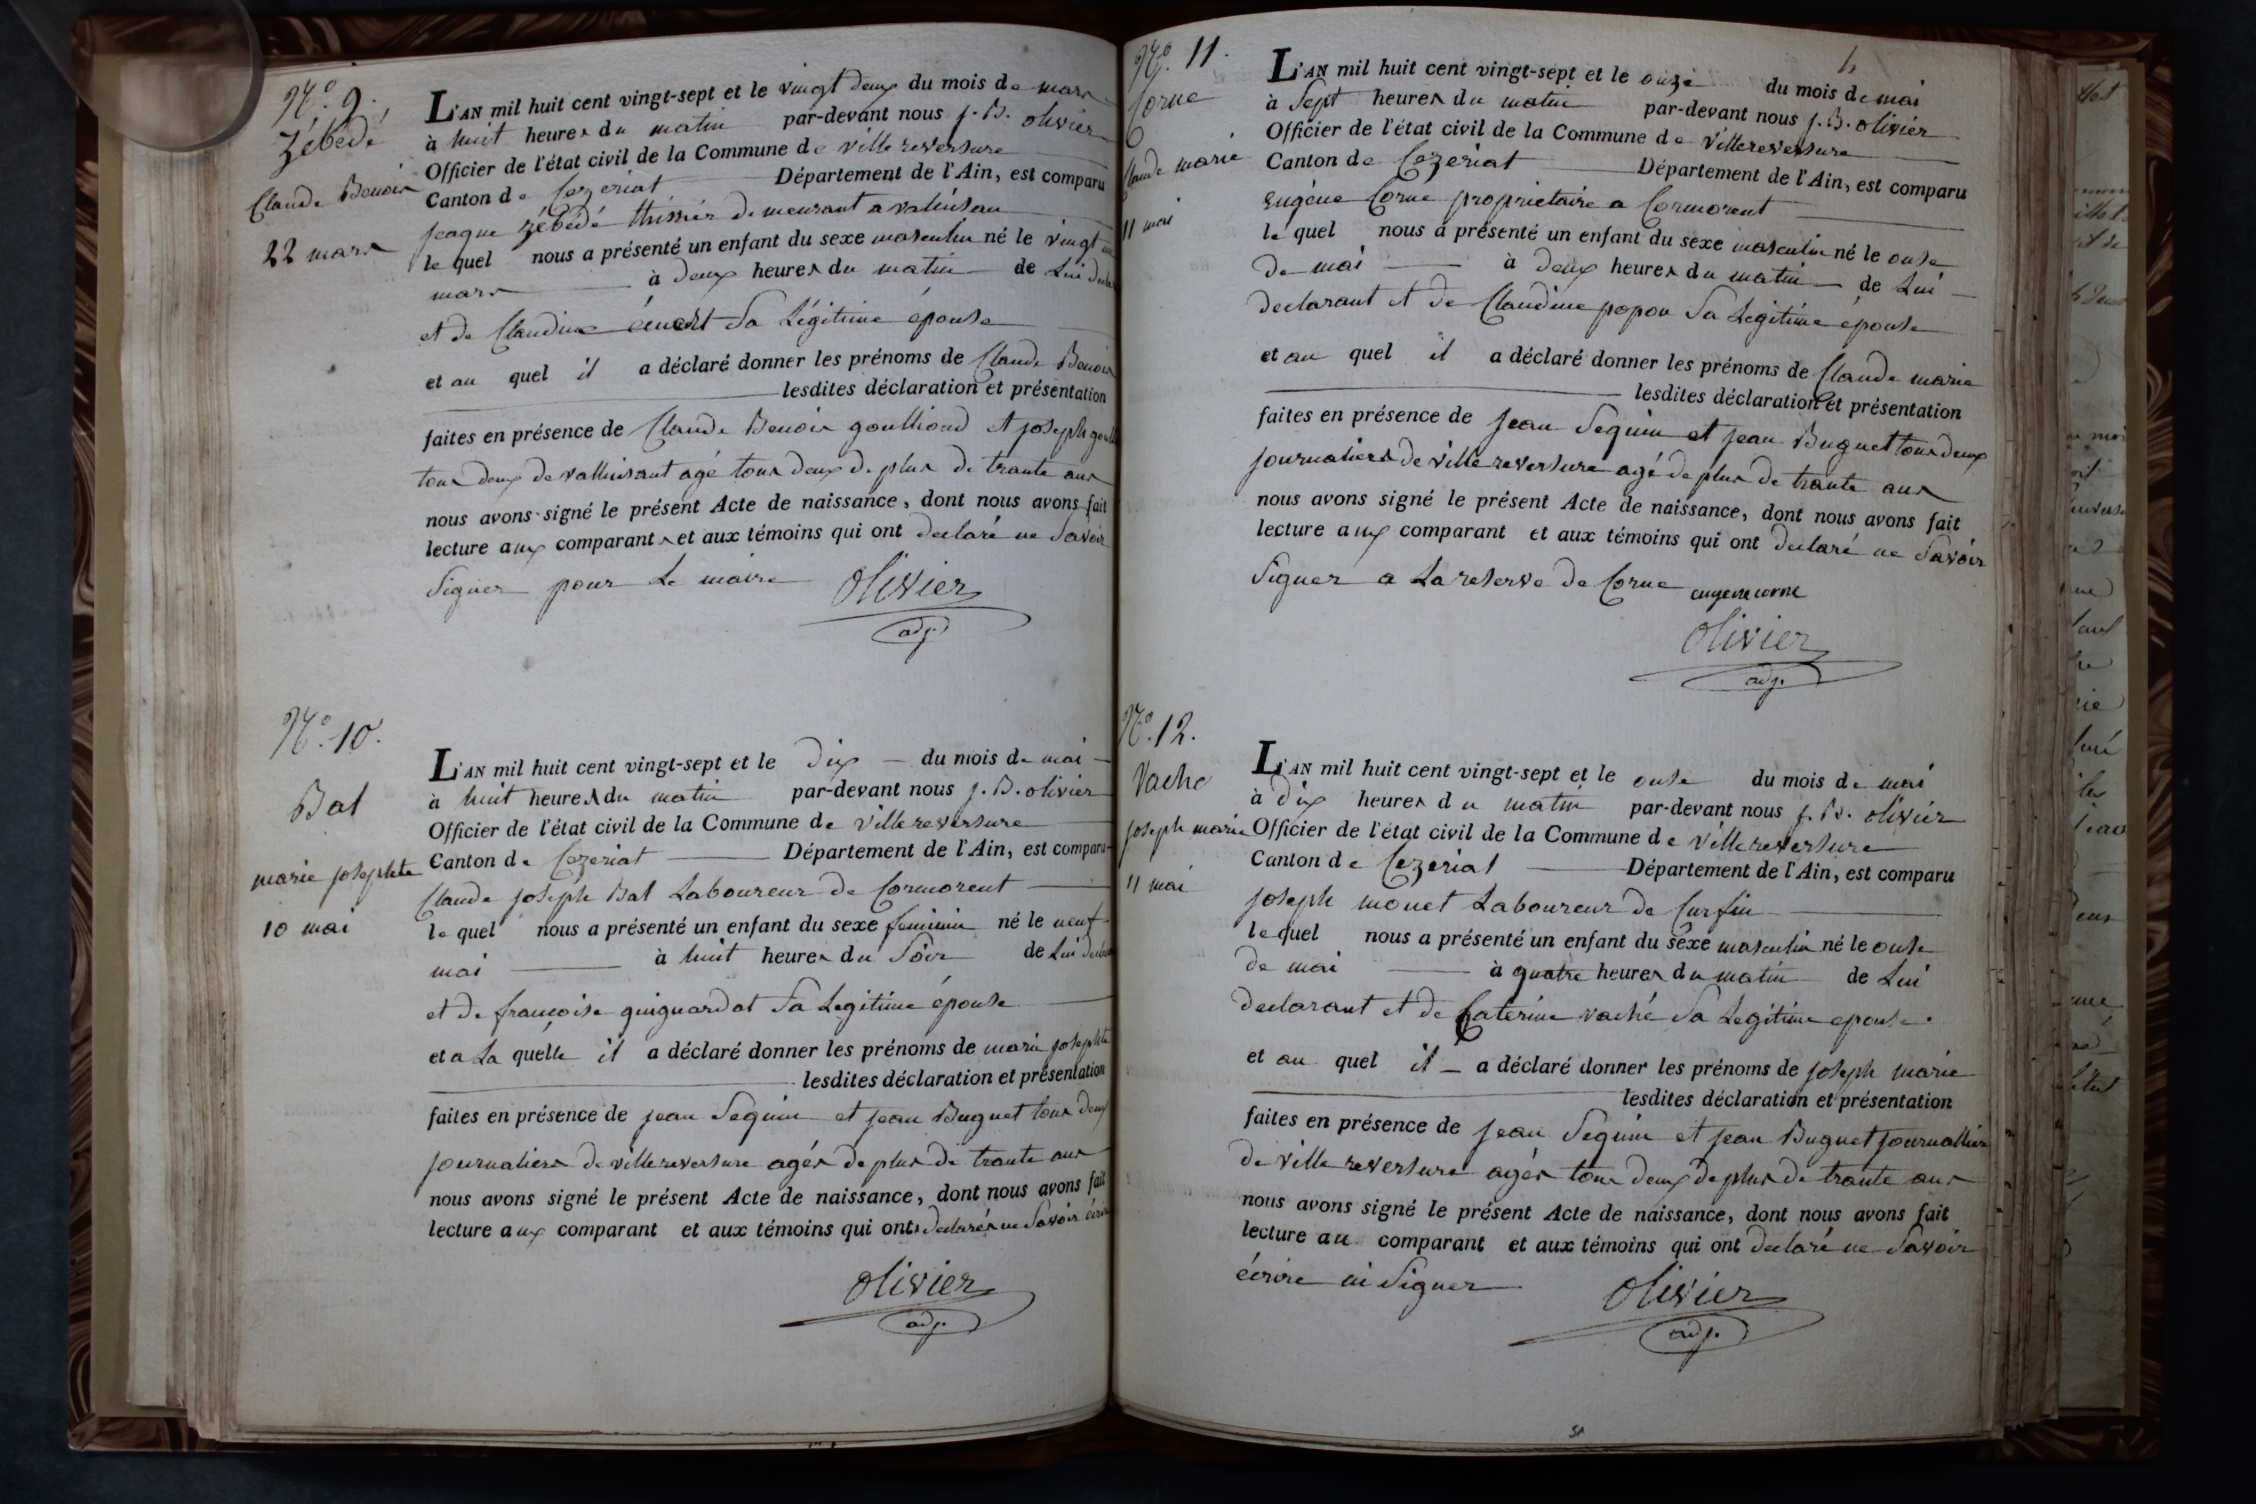 N.o 9.
Zébédé
Claude Benoir
22 mars
L'AN mil huit cent vingt-sept et le vingt deux du mois de mars
à huit heures du matin par-devant nous j. B. olivier
Officier de l'état civil de la Commune de villereversure
Canton de Cezeriat Département de l'Ain, est comparu
jeaque zébédé thissiér demeurant a valuisau
le quel nous a présenté un enfant du sexe masculin né le vingt
mars à deux heures du matin de Lui
et de Claudine Sa Légitime épouse
et au quel il a déclaré donner les prénoms de Claude Benoir
lesdites déclaration et présentation
faites en présence de Claude Benoir goulliond et joseph
tous deux de valluisant agé tous deux de plus de trante ans
nous avons signé le présent Acte de naissance, dont nous avons fait
lecture aux comparants et aux témoins qui ont declaré ne Savoir
Signer pour Le maire olivier
adj.
N.o 10.
Bal
marie josephte
10 mai
L'AN mil huit cent vingt-sept et le dix du mois de mai
à huit heures du matin par-devant nous j. B. olivier
Officier de l'état civil de la Commune de villereversure
Canton de Cezeriat Département de l'Ain, est comparu
Claude joseph Bal Laboureur de Cormorent
le quel nous a présenté un enfant du sexe feminin né le neuf
mai à huit heures du Soir de Lui
et de francoise guignardat Sa Legitime épouse
et a La quelle il a déclaré donner les prénoms de marie josephte
lesdites déclaration et présentation
faites en présence de jean Seguin et jean Buguet tous deux
journaliers de villereversure agés de plus de trante ans
nous avons signé le présent Acte de naissance, dont nous avons fait
lecture aux comparant et aux témoins qui ont declarés ne Savoir écrire
olivier
adj.
4
N.o 11.
Corne
Claude marie
11 mai
L'AN mil huit cent vingt-sept et le onze du mois de mai
à Sept heures du matin par-devant nous j. B. olivier
Officier de l'état civil de la Commune de villereversure
Canton de Cezeriat Département de l'Ain, est comparu
Eugéne Corne proprietaire a Cormorent
le quel nous a présenté un enfant du sexe masculin né le onse
de mai à deux heures du matin de Lui
declarant et de Claudine popon Sa Legitime épouse
et au quel il a déclaré donner les prénoms de Claude marie
lesdites déclaration et présentation
faites en présence de jean Seguin et jean Buguet tous deux
journaliers de villereversure agé de plus de trante ans
nous avons signé le présent Acte de naissance, dont nous avons fait
lecture aux comparant et aux témoins qui ont declaré ne Savoir
Signer a La reserve de Corne eugene corne
olivier
adj.
N.o 12.
Vache
joseph marie
11 mai
L'AN mil huit cent vingt-sept et le onse du mois de mai
à dix heures du matin par-devant nous j. B. olivier
Officier de l'état civil de la Commune de villereversure
Canton de Cezeriat Département de l'Ain, est comparu
joseph monet Laboureur de Curfin
le quel nous a présenté un enfant du sexe masculin né le onse
de mai à quatre heures du matin de Lui
declarant et de Caterine vaché Sa Legitime epouse.
et au quel il a déclaré donner les prénoms de joseph marie
lesdites déclaration et présentation
faites en présence de jean Seguin et jean Buguet journallier
de villereversure agés tous deux de plus de trante ans
nous avons signé le présent Acte de naissance, dont nous avons fait
lecture au comparant et aux témoins qui ont declaré ne Savoir
écrire ni Signer olivier
adj.